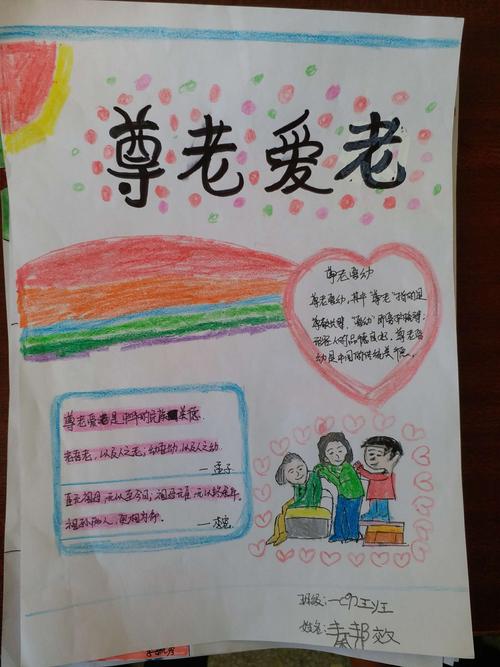 尊老爱老
尊老爱幼
尊老爱幼,其中"尊老"指的是
尊敬长辈,"爱幼"即喜爱晚辈;
形容人的品德良好。尊老爱
幼是中国的传统美德。
尊老爱老是中华的民族美德.
老吾老,以及人之老;幼吾幼,以及人之幼.
—孟子
臣无祖母,无以至今日;祖母无臣,无以终余年。
祖孙两人,更相为命.
—李密
班级:
姓名:秦邦效